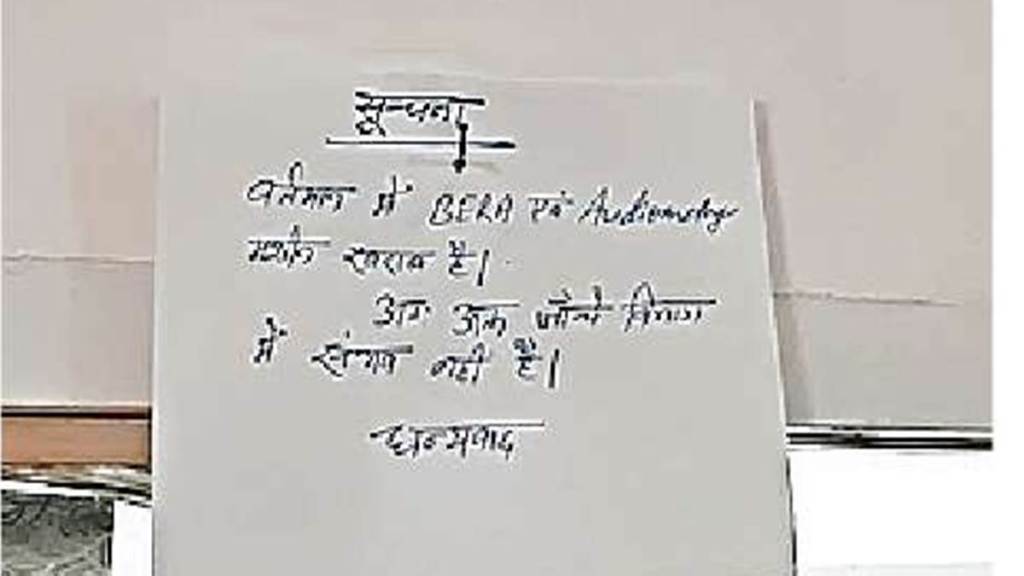 सूचना
वर्तमान में BERA एवं Audiometry
मशीन खराब है।
अतः उक्त जाँचें विभाग
में संभव नहीं है।
धन्यवाद